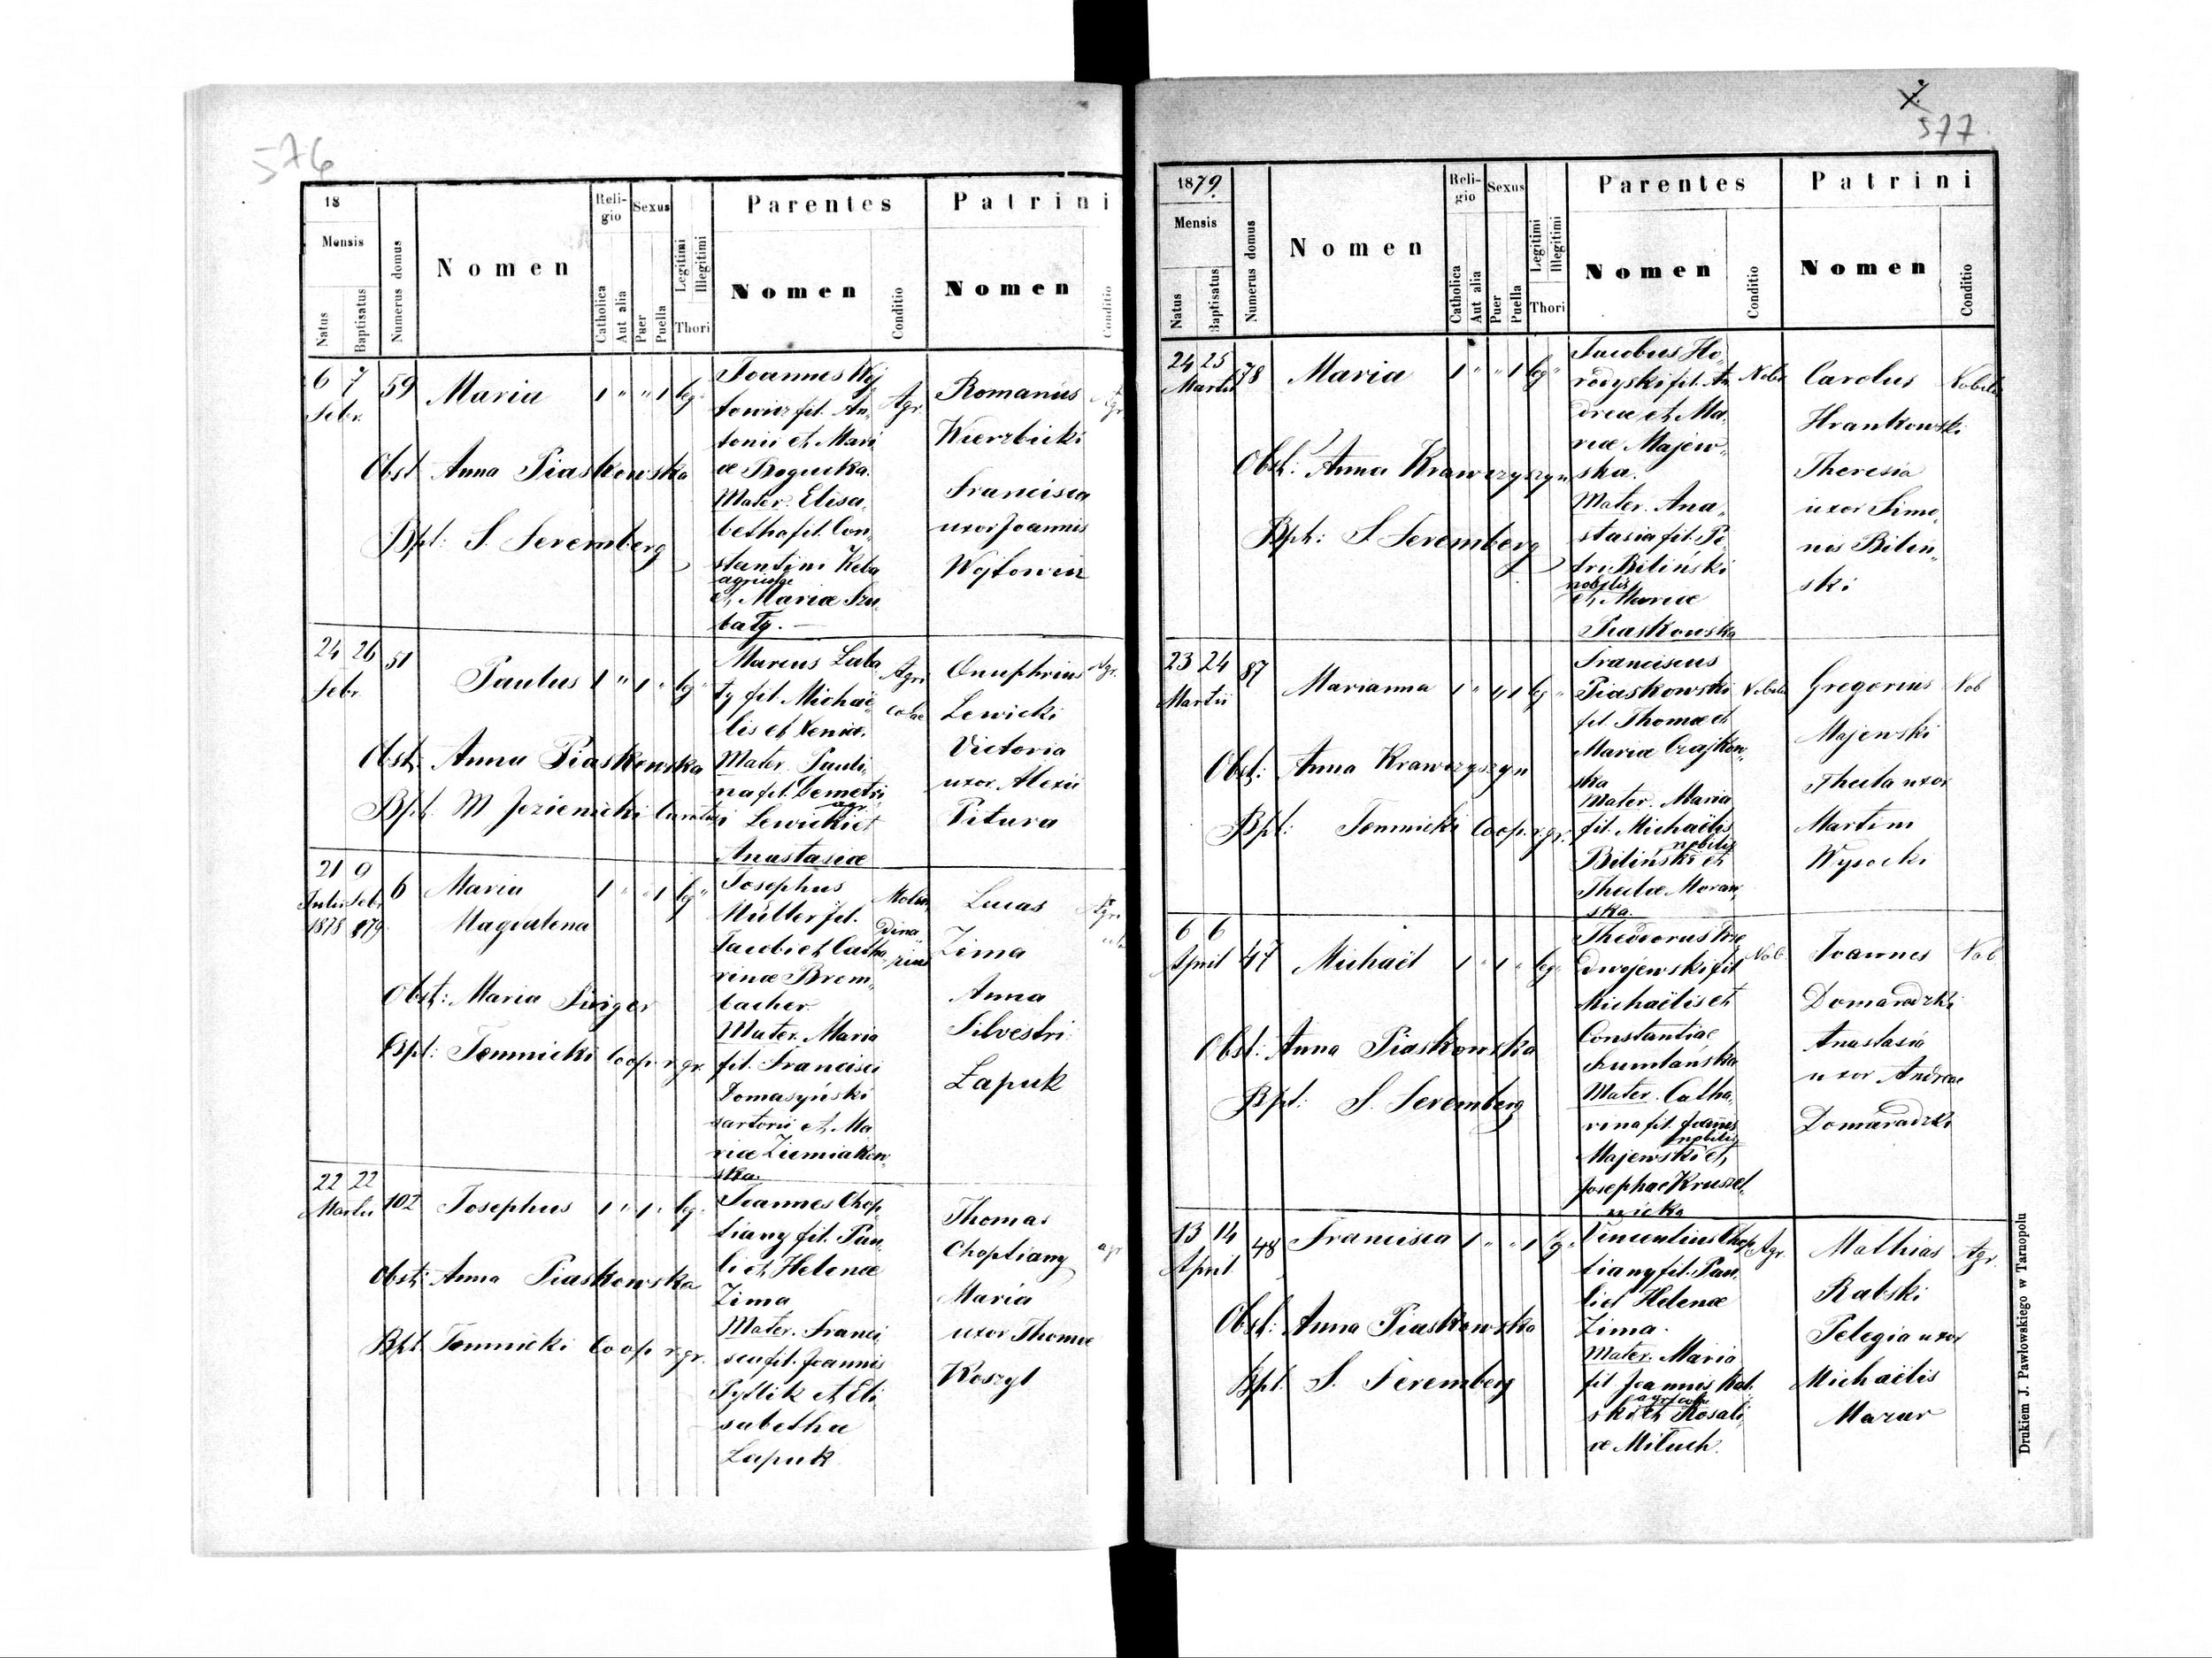 576
18
Mensis
Natus
Baptisatus
Numerus domus
Nomen
Religio
Catholica
Aut alia
Sexus
Puer
Puella
Legitimi
Illegitimi
Thori
Parentes
Nomen
Conditio
Patrini
Nomen
Conditio
6 7
Febr.
59
Maria
1 " " 1 leg "
Obst Anna Piaskowska
Bpt: S. Seremberg
Joannes Wój
towicz fil. An
tonii et Mari
æ Rogucka.
Mater. Elisa
betha fil. Con
stantini Keba
agricolæ
et Mariæ Szu
baty.
Agr.
Romanus
Wierzbicki
Francisca
uxor Joannis
Wojtowicz
Agr
24 26
Febr.
51
Paulus
1 " 1 " leg "
Obst. Anna Piaskowska
Bpt. M Jezienicki Curatus
Marcus Luba
ty fil. Michaë
lis et Xeniæ.
Mater. Pauli
na fil. Demetri
agr.
i Lewicki et
Anastasiæ
Agri
colae
Onuphrius
Lewicki
Victoria
uxor Alexii
Pitura
Agr.
21 9
Febr
1878 879
6
Maria
Magdalena
1 " " 1 leg "
Obst: Maria Singer
Bpt: Temnicki Coop r. gr.
Josephus
Müller fil.
Jacobi et Catha
rinæ Brem
bacher.
Mater. Maria
fil. Francisci
Tomasyński
sartorii et Ma
riæ Ziemiakow
ska.
Molen
dina
rius
Lucas
Zima
Anna
Silvestri
Łapuk
Agri
22 22
Martii
102
Josephus
1 " 1 " leg.
Obst: Anna Piaskowska
Bpt Temnicki Coop r. gr.
Joannes Chop
tiany fil. Pau
li et Helenæ
Zima
Mater. Franci
sca fil. Joannis
Pyllik et Eli
sabethæ
Łapuk
Thomas
Choptiany
Maria
uxor Thomæ
Koszyl
agr
577
1879.
Mensis
Natus
Baptisatus
Numerus domus
Nomen
Religio
Catholica
Aut alia
Sexus
Puer
Puella
Legitimi
Illegitimi
Thori
Parentes
Nomen
Conditio
Patrini
Nomen
Conditio
24 25
Martii
78
Maria
1 " " 1 leg "
Obst: Anna Krawczyszyn
Bpt: S Seremberg
Jacobus Ho
rodyski fil. An
dreæ et Ma
riæ Majew
ska.
Mater. Ana
stasia fil. Pe
tri Biliński
nobilis
et Mariæ
Piaskowska
Nobi
Carolus
Hrankowski
Theresia
uxor Simo
nis Bilin
ski
Nobilis
23 24
Martii
87
Marianna
1 " " 1 leg "
Obst: Anna Krawczyszyn
Bpt: Temnicki Coop r. gr.
Franciscus
Piaskowski
fil. Thomæ et
Mariæ Czajkow
ska
Mater. Maria
fil. Michaëlis
nobilis
Biliński et
Theclæ Moraw
ska.
Nobilis
Gregorius
Majewski
Thecla uxor
Martini
Wysocki
Nob
6 6
April
47
Michaël
1 " 1 " leg "
Obst: Anna Piaskowska
Bpt: S. Seremberg
Theodorus
dwojewski fil
Michaëlis et
Constantiae
Kumlańska
Mater. Catha
rina fil. Joannes
nobilis
Majewski et
Josephae Kruszel
nicka
Nob.
Joannes
Domaradzki
Anastasia
uxor Andreae
Domaradzki
Nob
13 14
April.
48
Francisca
1 " " 1 leg "
Obst: Anna Piaskowska
Bpt. S. Seremberg
Vincentius Chop
tiany fil. Pau
li et Helenæ
Zima.
Mater. Maria
fil Joannis Rab
agricolæ
ski et Rosali
æ Miluch.
Agr.
Mathias
Rabski
Pelegia uxor
Michaëlis
Mazur
Agr.
Drukiem J. Pawłowskiego w Tarnopolu